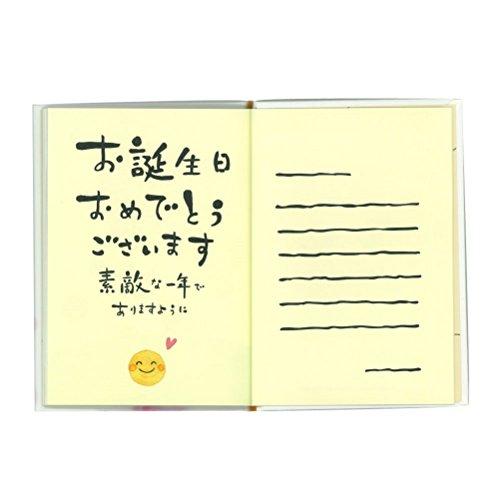 お誕生日
おめでとう
ございます
素敵な一年で
ありますように